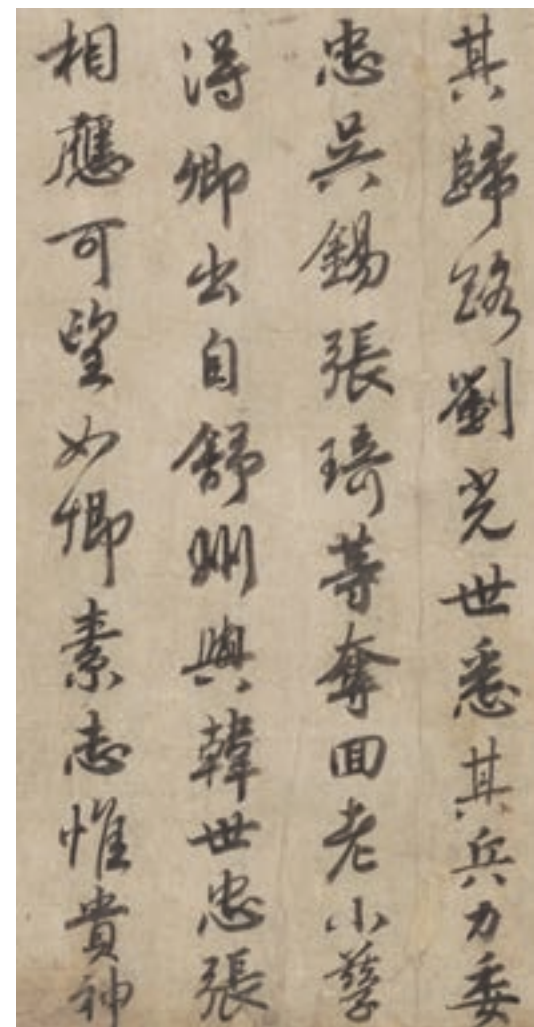 其歸路劉光世悉其兵力委
忠吳錫張琦等奪回老小孳
得卿出自舒州與韓世忠張
相應可望如卿素志惟貴神